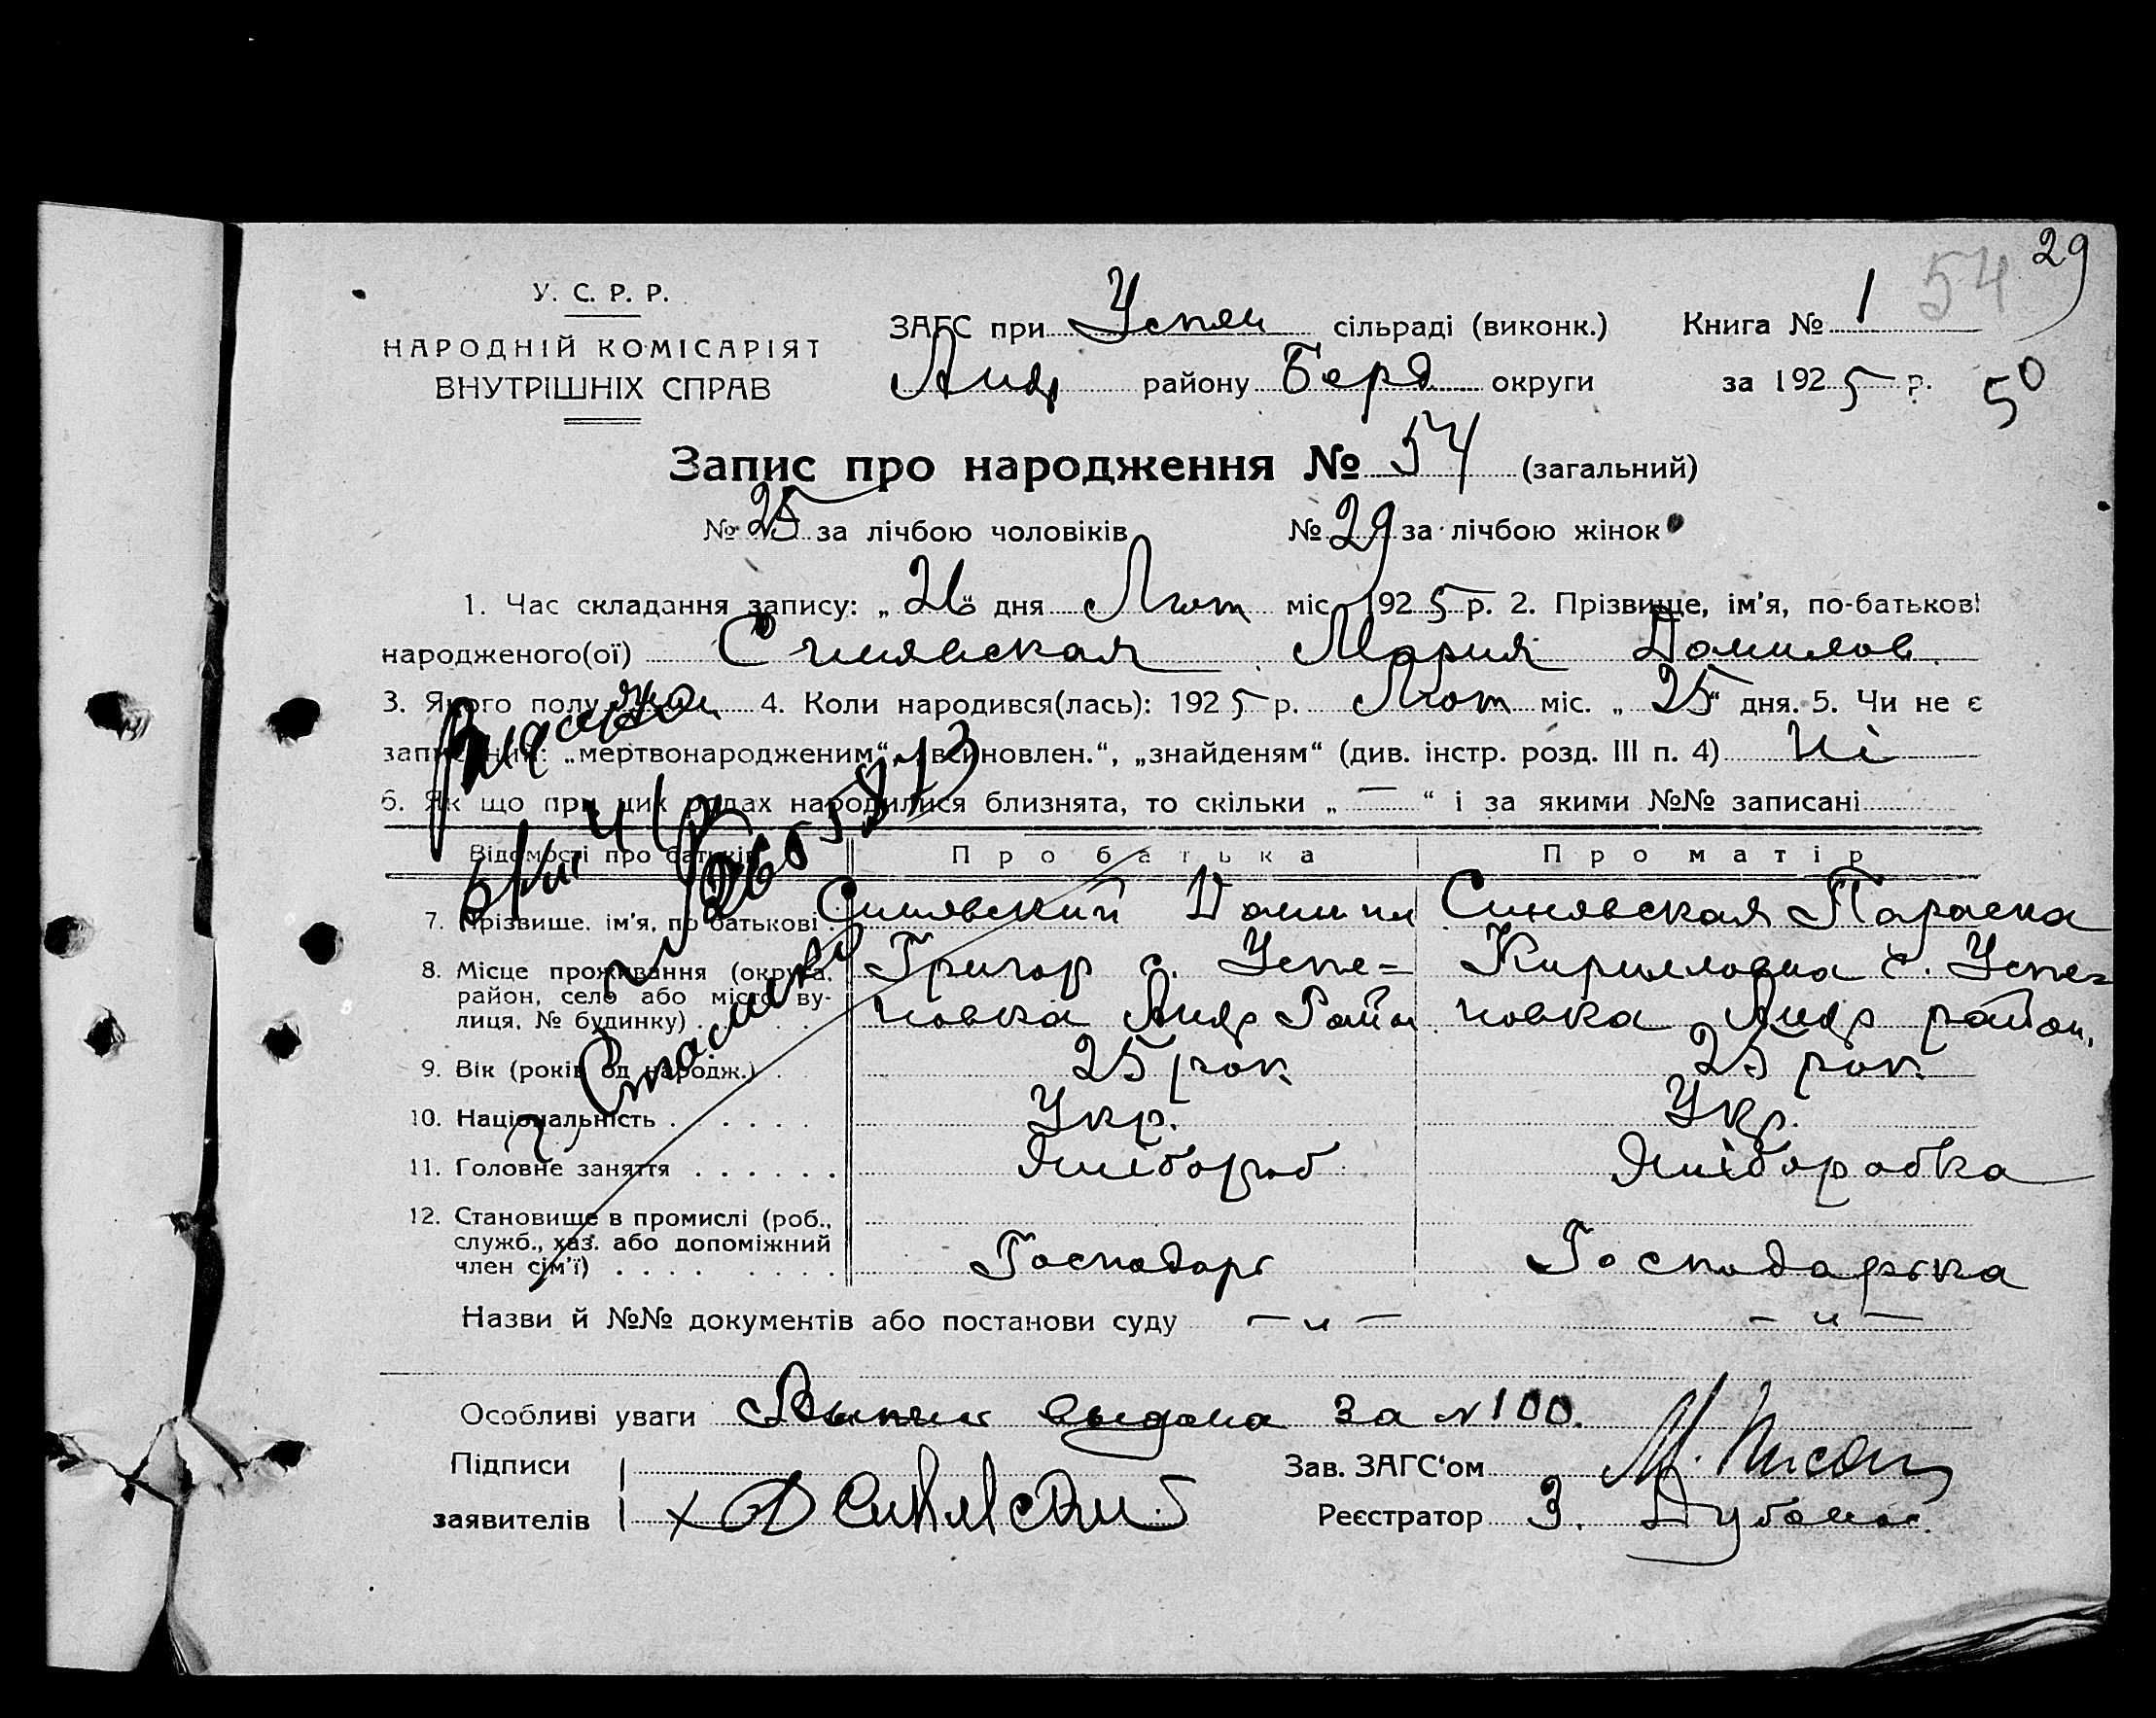 29
54
У. С. Р. Р.
НАРОДНІЙ КОМІСАРІЯТ
ВНУТРІШНІХ СПРАВ
ЗАГС при Успен сільраді (виконк.) Книга № 1
Андр району Берд округи за 1925 р.
50
Запис про народження № 54 (загальний)
№ 25 за лічбою чоловіків № 29 за лічбою жінок
1. Час складання запису: „26“ дня Лют міс. 1925 р. 2. Прізвище, ім'я, по-батькові
народженого(ої) Синявская Мария Данилов
3. Якого полу жін 4. Коли народився(лась): 1925 р. Лют міс. „25“ дня. 5. Чи не є
записаний: „мертвонародженим“, „всиновлен.“, „знайденям“ (див. інстр. розд. III п. 4) Ні
6. Як що при цих родах народилися близнята, то скільки „—“ і за якими №№ записані
Відомості про батьків Про батька Про матір
7. Прізвище, ім'я, по батькові Синявский Данил Синявская Параска
8. Місце проживання (округа, Григор с. Успе= Кирилловна с. Успе=
район, село або місто, ву- новка Андр Район новка Андр район.
лиця, № будинку)
9. Вік (років од народж.) 25 рок 25 рок
10. Національність Укр. Укр.
11. Головне заняття Хлібороб Хліборобка
12. Становище в промислі (роб.,
служб., хаз. або допоміжний
член сім'ї) Господарь Господарька
Назви й №№ документів або постанови суду — „ — — „ —
Особливі уваги выдана за №100.
Підписи Зав. ЗАГС'ом
заявителів х Д Синявский Реєстратор З.